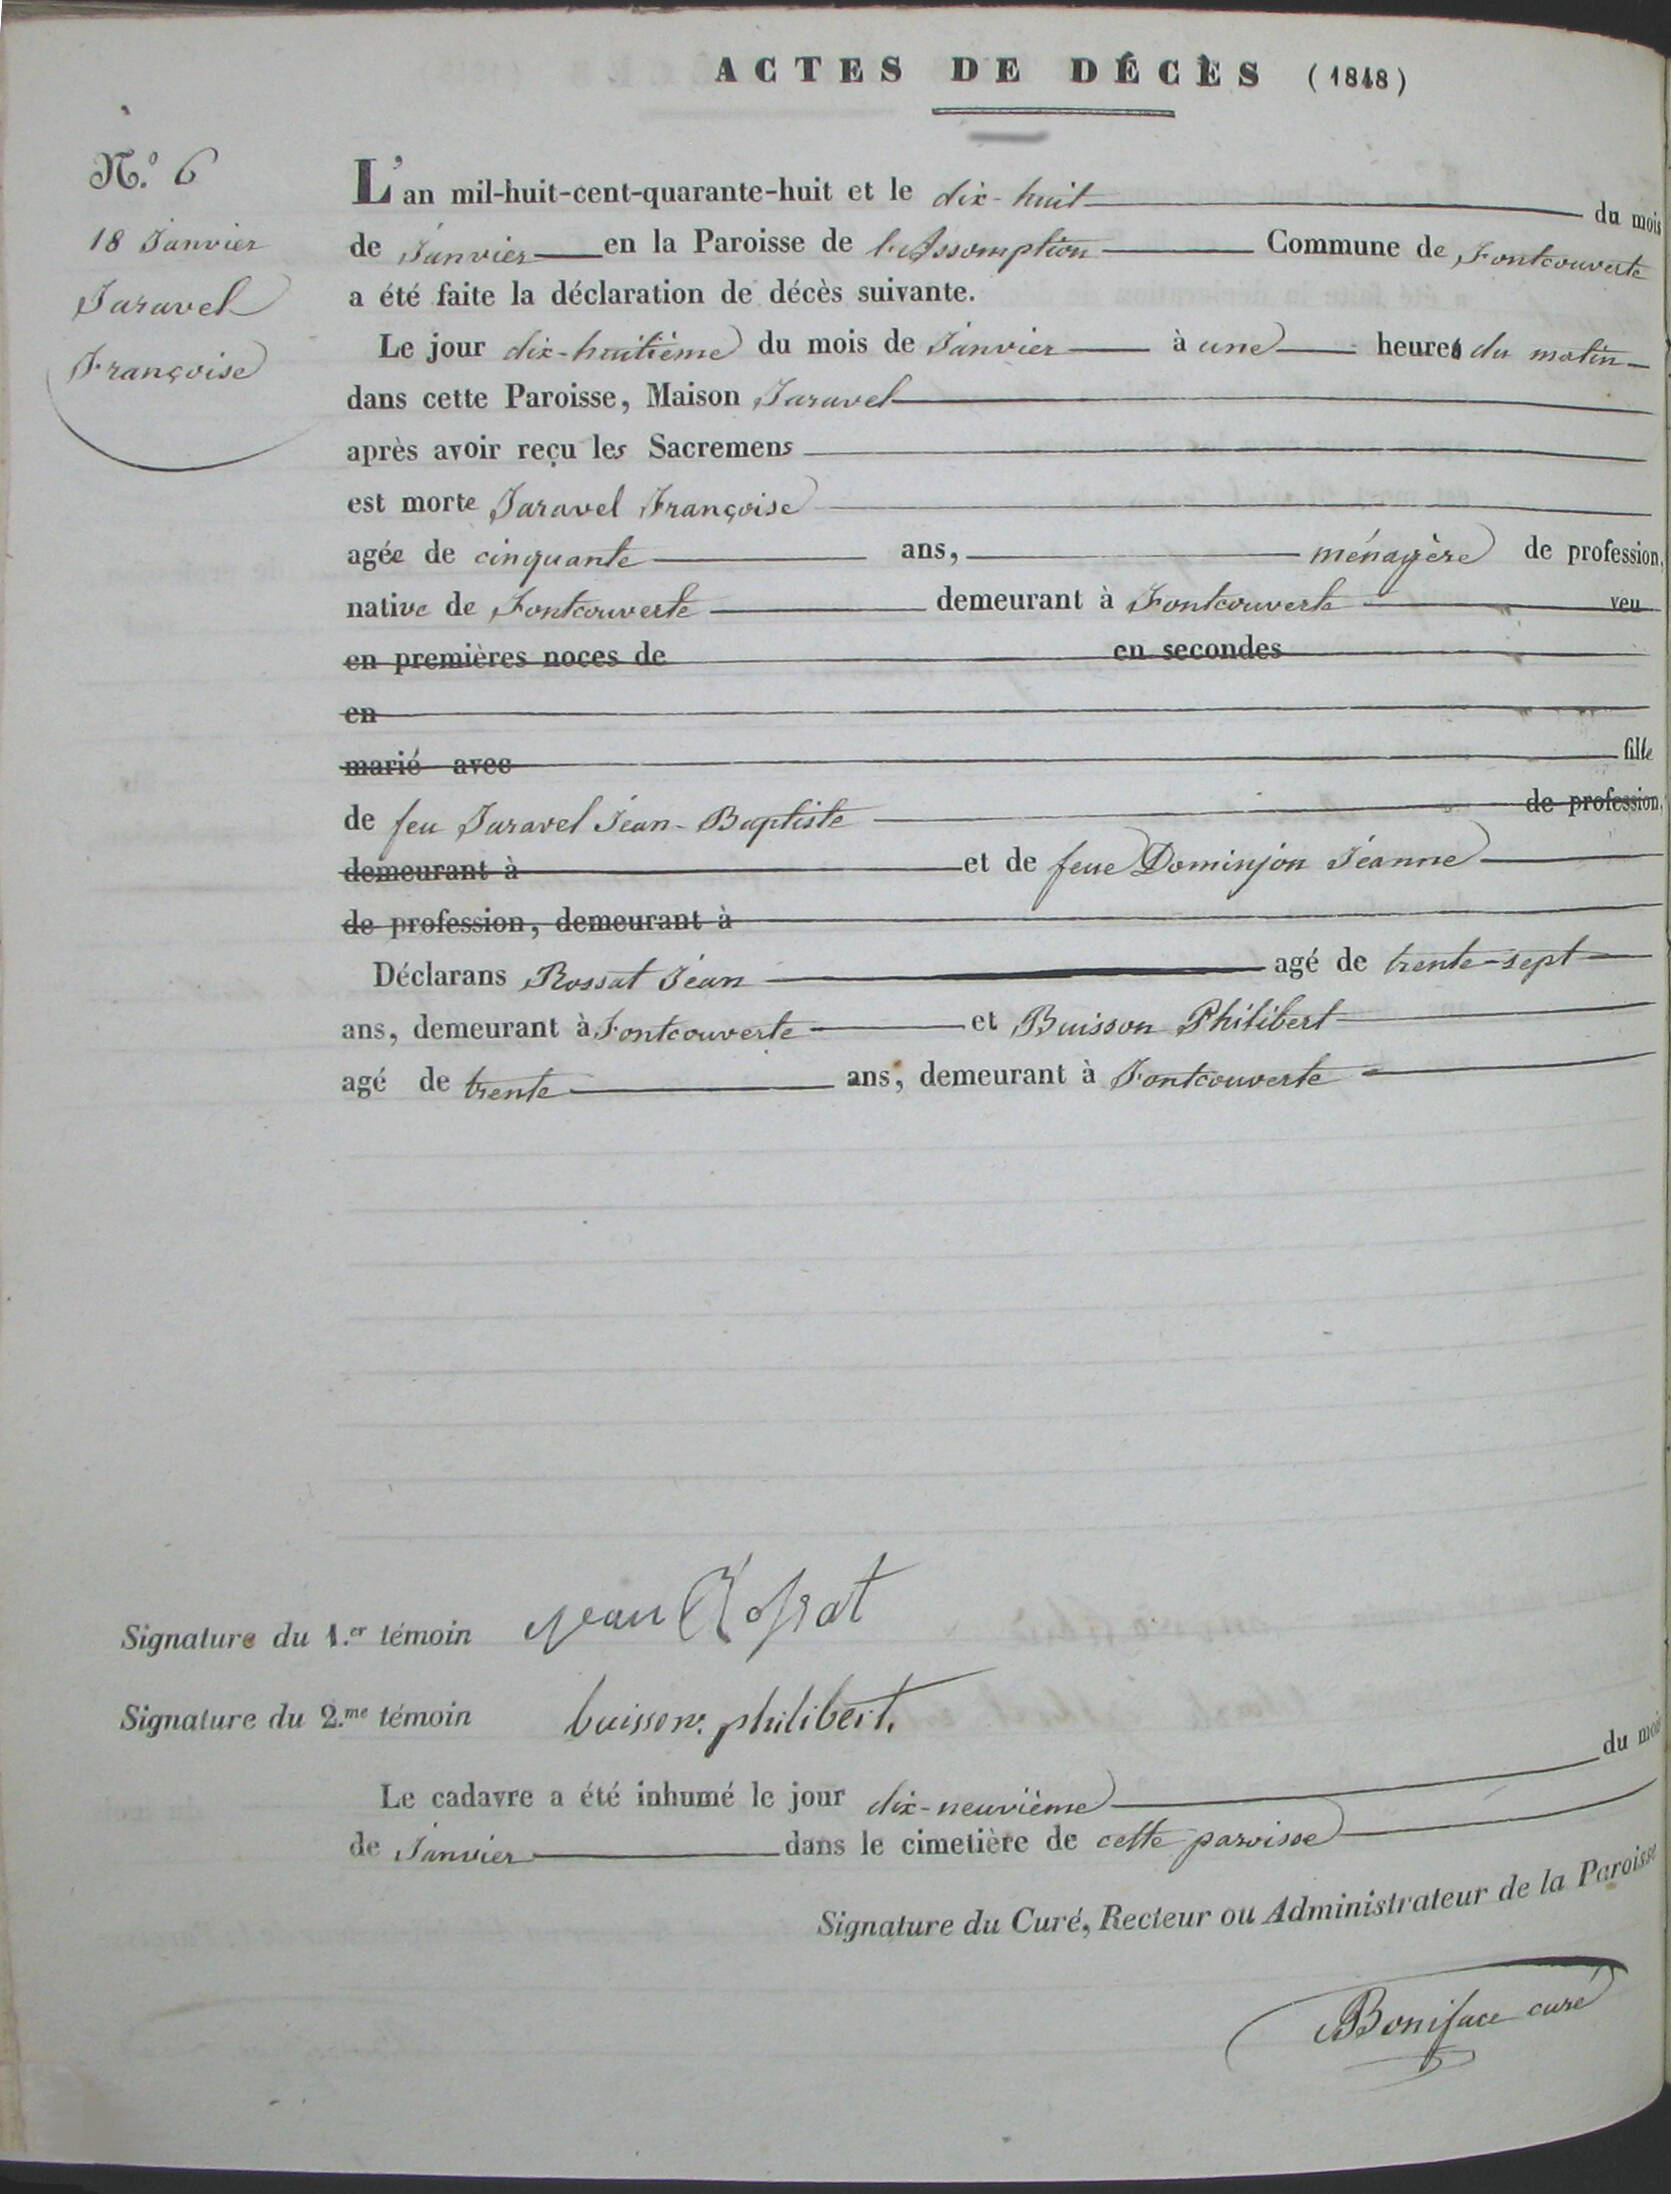 ACTES DE DÉCÈS (1848)
N.º 6
18 Janvier
Jaravel
Françoise
L'an mil-huit-cent-quarante-huit et le dix-huit du mois
de Janvier en la Paroisse de l'Assomption Commune de Fontcouverte
a été faite la déclaration de décès suivante.
Le jour dix-huitième du mois de Janvier à une heures du matin
dans cette Paroisse, Maison Jaravel
après avoir reçu les Sacremens
est morte Jaravel Françoise
agée de cinquante ans, ménagère de profession,
native de Fontcouverte demeurant à Fontcouverte veu
en premières noces de en secondes
en
marié avec fille
de feu Jaravel Jean-Baptiste de profession,
demeurant à et de feue Dominjon Jéanne
de profession, demeurant à
Déclarans Rossat Jéan agé de trente-sept
ans, demeurant à Fontcouverte et Buisson Philibert
agé de trente ans, demeurant à Fontcouverte
Signature du 1.er témoin jean Rossat
Signature du 2.me témoin buisson philibert.
Le cadavre a été inhumé le jour dix-neuvième du mois
de Janvier dans le cimetière de cette paroisse
Signature du Curé, Recteur ou Administrateur de la Paroisse
Boniface curé